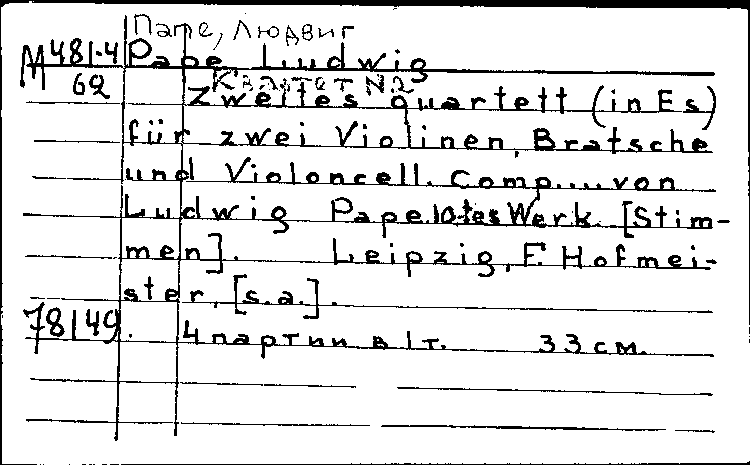 Папе, Людвиг
M 481-4 Pape, Ludwig
62 Квартет N2
Zweites quartett (in Es)
für zwei Violinen, Bratsche
und Violoncell. Comp.... von
Ludwig Pape. 10-tes Werk. [Stim-
men]. Leipzig, F. Hofmei-
ster, [s.a.].
78149. 4 партии в 1 т. 33 см.